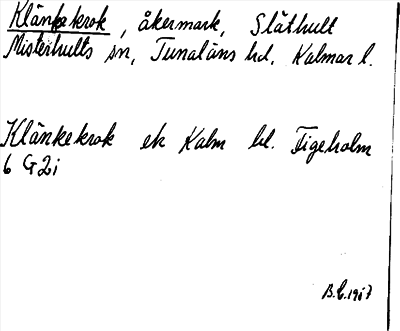 Klänkekrok, åkermark, Släthult
Misterhults sn, Tunaläns hd, Kalmar l.
Klänkekrok ek Kalm bl. Figeholm
6 G2i
B.E.1957